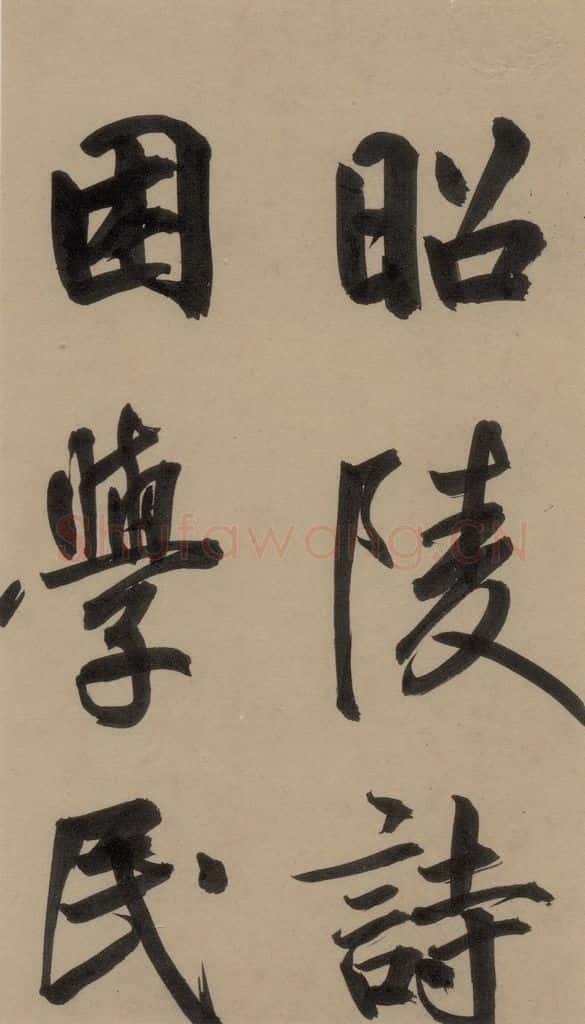 昭陵詩
困學民
Shufawang.CN